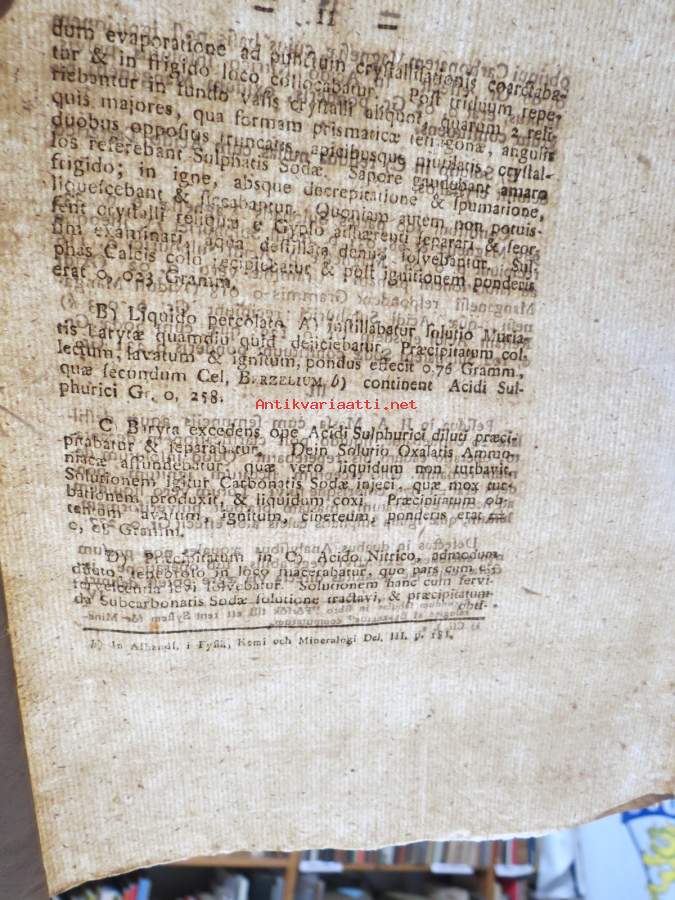 = 11 =
dum evaporatione ad punctum crystallisationis coarctaba-
tur & in frigido loco collocabatur. Post triduum repe-
riebantur in fundo vasis crystalli aliquot, quarum 2 reli-
quis majores, qua formam prismaticæ tetragonæ, angulis
duobus oppositis truncatis, apicibusque mutilatis crystal-
los referebant Sulphatis Sodæ. Sapore gaudebant amaro
frigido; in igne, absque decrepitatione & spumatione,
liquescebant & siccabantur. Quoniam autem non potuis-
sent crystalli reliquæ e Gypso adhærenti separari & seor-
sim examinari, aqua destillata denuo solvebantur. Sul-
phas Calcis colo recipiebatur & post ignitionem ponderis
erat 0, 023 Gramm.
B) Liquido percolato A) instillabatur solutio Muria-
tis Barytæ quamdiu quid dejiciebatur. Præcipitatum col-
lectum, lavatum & ignitum, pondus effecit 0.76 Gramm,
quæ secundum Cel, BERZELIUM b) continent Acidi Sul-
phurici Gr. 0, 258.
Antikvariaatti.net
C. Baryta excedens ope Acidi Sulphurici diluti præci-
pitabatur & separabatur. Dein Solutio Oxalatis Ammo-
niacæ affundebatur, quæ vero liquidum non turbavit.
Solutionem igitur Carbonatis Sodæ injeci, quæ mox tur-
bationem produxit, & liquidum coxi. Præcipitatum ob-
tentum, ignitum, cinereum ponderis erat
Gramm.
D) Præcipitatum in C) Acido Nitrico, admodum
diluto, in loco macerabatur, quo pars cum ef-
fervescentia levi solvebatur. Solutionem hanc cum fervi-
da Subcarbonatis Sodæ solutione tractavi, & præcipitatum
obti-
b) In Afhandl. i Fysik, Kemi och Mineralogi Del. III. p. 181.